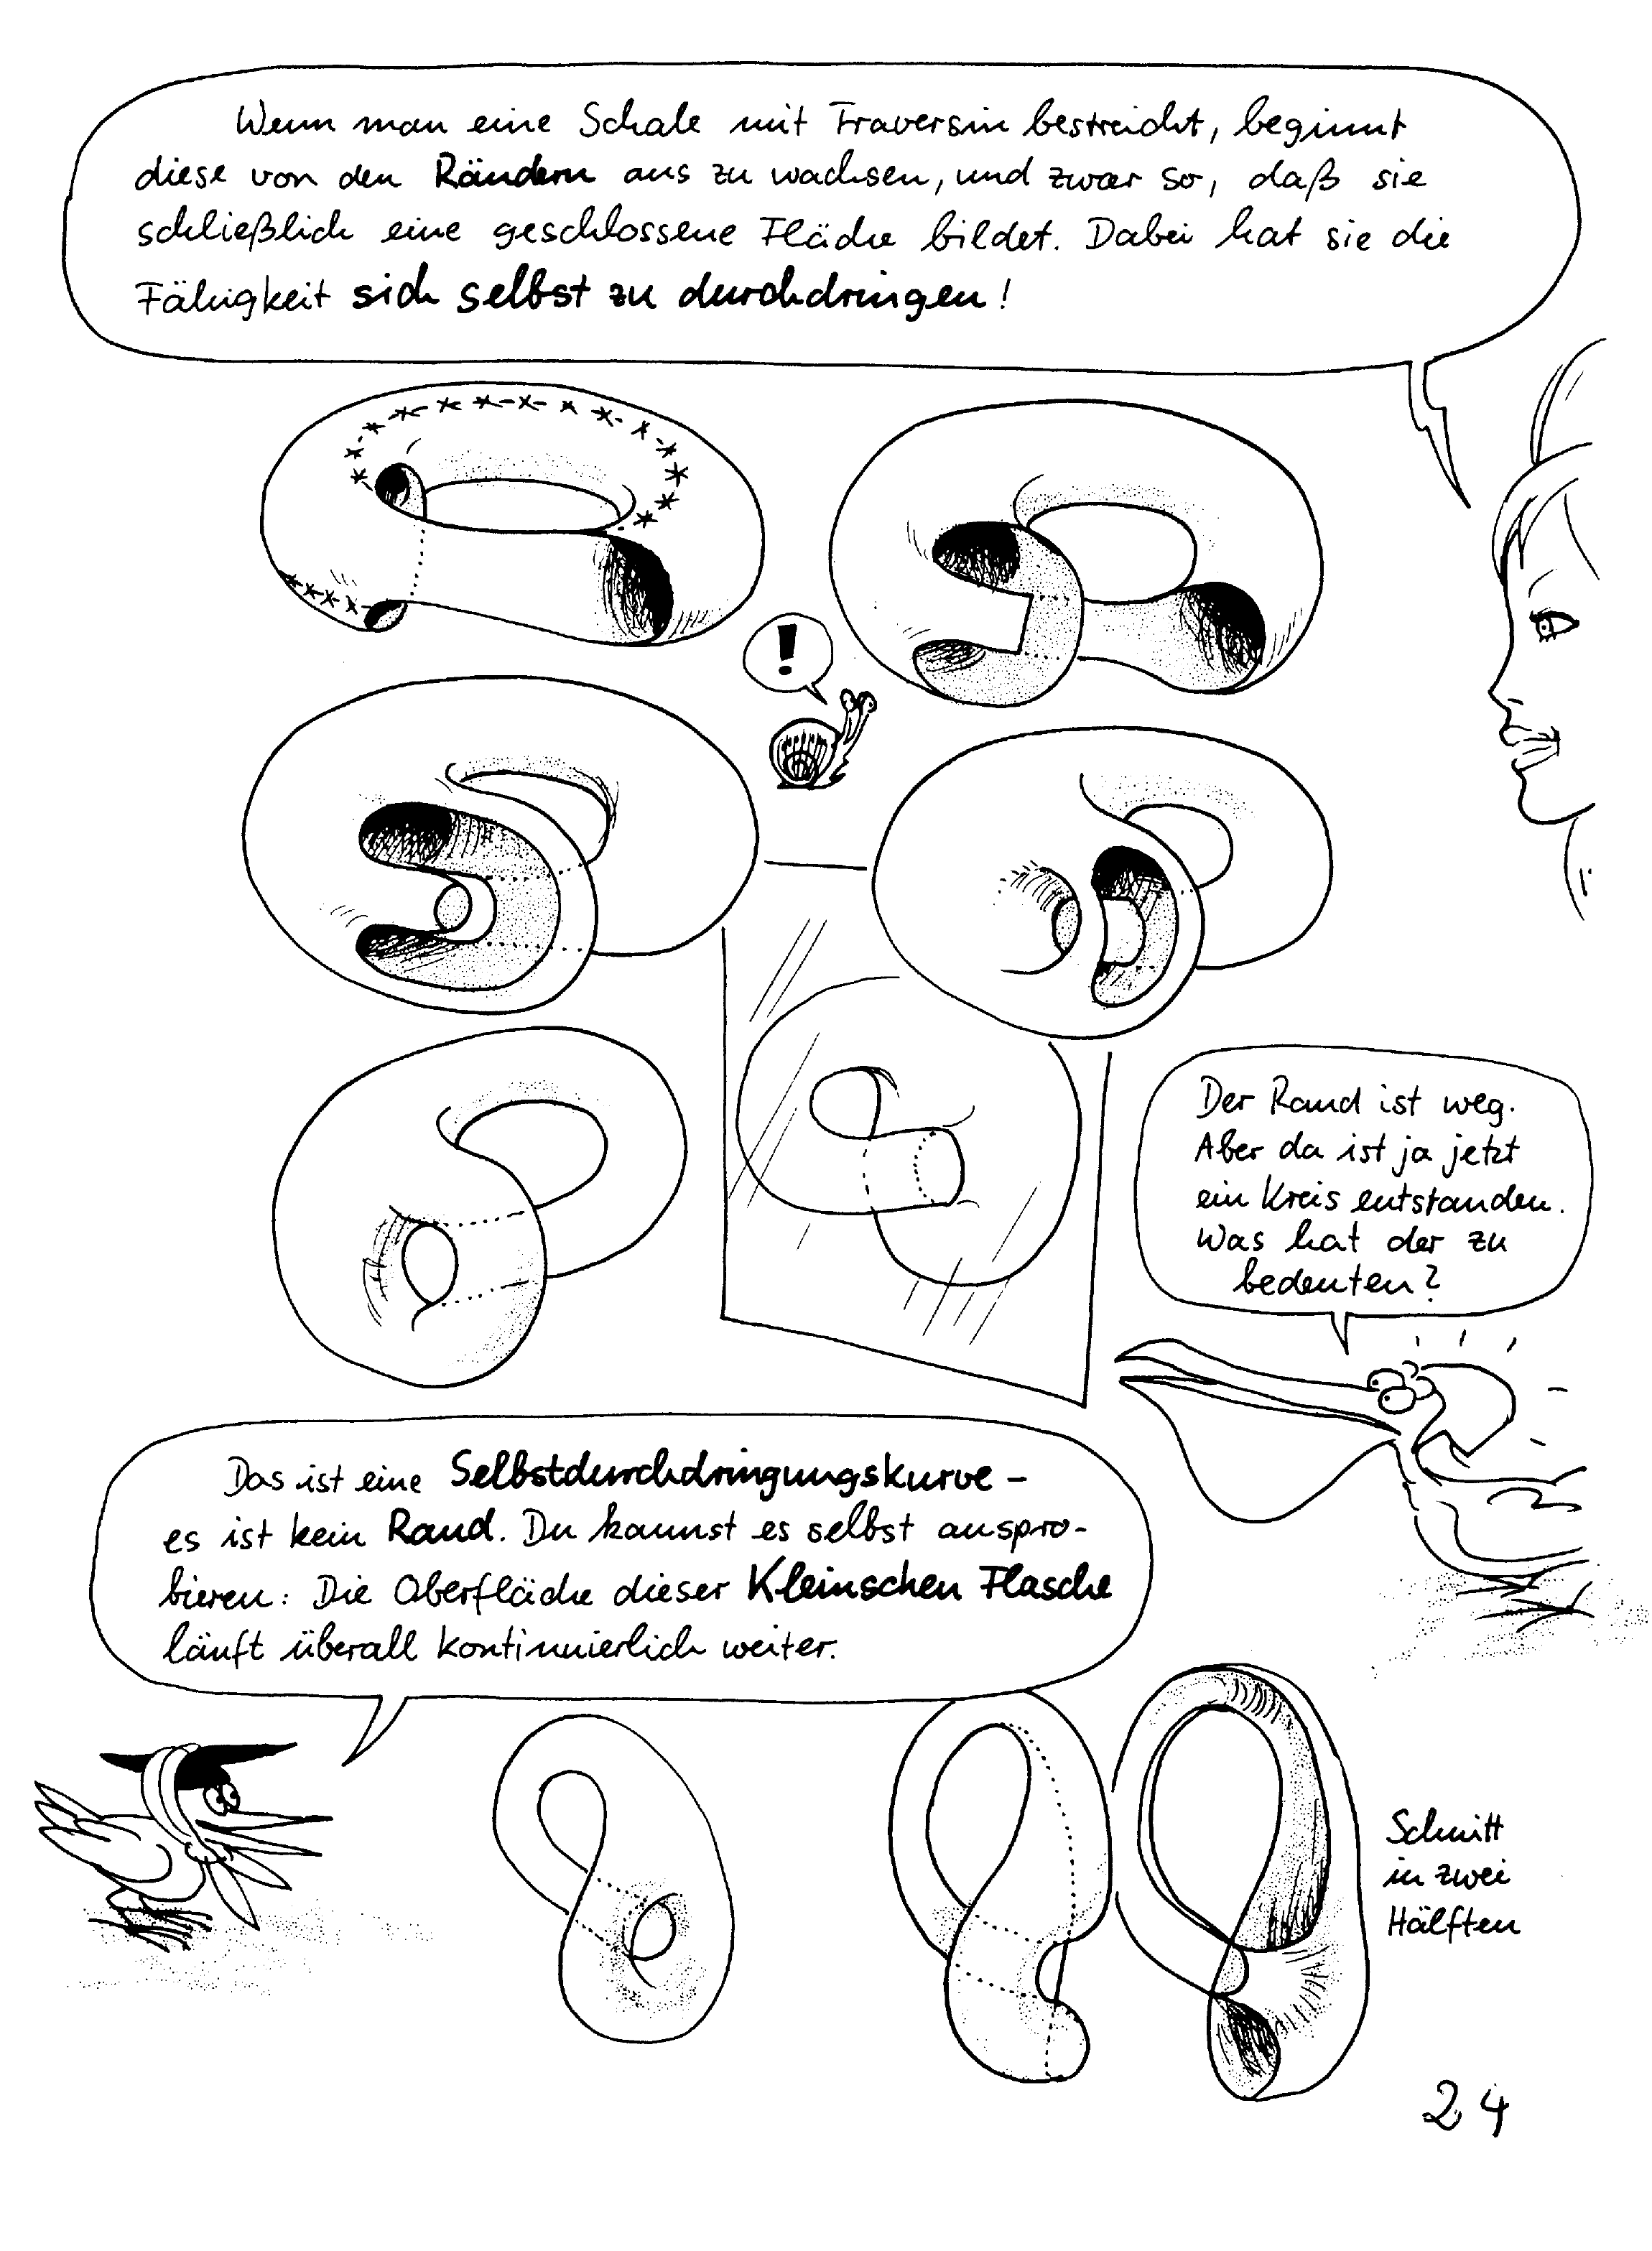 Wenn man eine Schale mit Traversin bestreicht, beginnt
diese von den Rändern aus zu wachsen, und zwar so, daß sie
schließlich eine geschlossene Fläche bildet. Dabei hat sie die
Fähigkeit sich selbst zu durchdringen!
!
Der Rand ist weg.
Aber da ist ja jetzt
ein Kreis entstanden.
Was hat der zu
bedeuten?
Das ist eine Selbstdurchdringungskurve -
es ist kein Rand. Du kannst es selbst auspro-
bieren: Die Oberfläche dieser Kleinschen Flasche
läuft überall kontinuierlich weiter.
Schnitt
in zwei
Hälften
24